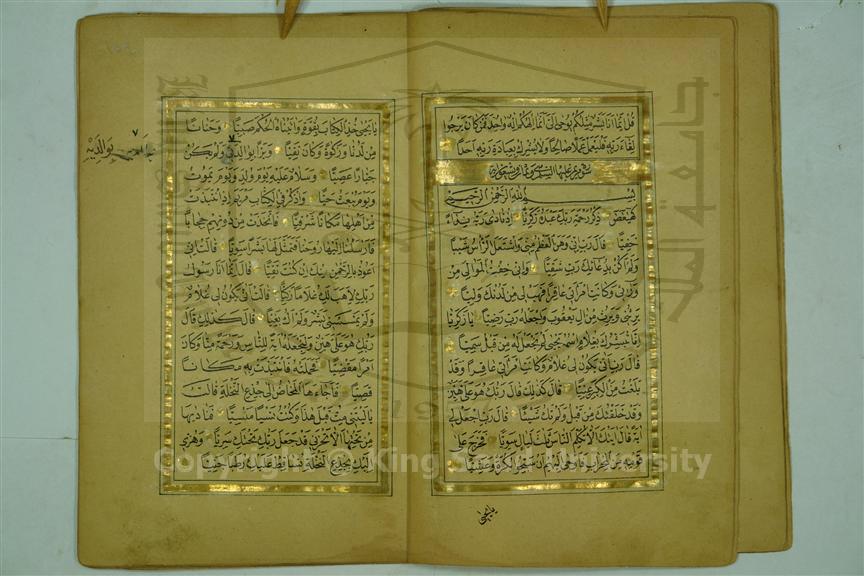 قل إنما أنا بشر مثلكم يوحى إلي أنما إلهكم إله واحد فمن كان يرجوا
لقاء ربه فليعمل عملا صالحا ولا يشرك بعبادة ربه أحدا
سورة مريم عليها السلام
بسم الله الرحمن الرحيم
كهيعص ذكر رحمة ربك عبده زكريا إذ نادى ربه نداء
خفيا قال رب إني وهن العظم مني واشتعل الرأس شيبا
ولم أكن بدعائك رب شقيا وإني خفت الموالي من
ورائي وكانت امرأتي عاقرا فهب لي من لدنك وليا
يرثني ويرث من آل يعقوب واجعله رب رضيا يا زكريا
إنا نبشرك بغلام اسمه يحيى لم نجعل له من قبل سميا
قال رب أنى يكون لي غلام وكانت امرأتي عاقرا وقد
بلغت من الكبر عتيا قال كذلك قال ربك هو علي هين
وقد خلقتك من قبل ولم تك شيئا قال رب اجعل لي
آية قال آيتك ألا تكلم الناس ثلاث ليال سويا فخرج على
قومه من المحراب فأوحى إليهم أن سبحوا بكرة وعشيا
يا يحيى
يا يحيى خذ الكتاب بقوة وآتيناه الحكم صبيا وحنانا
من لدنا وزكوة وكان تقيا وبرا بوالديه ولم يكن
جبارا عصيا وسلام عليه يوم ولد ويوم يموت
ويوم يبعث حيا واذكر في الكتاب مريم إذ انتبذت
من أهلها مكانا شرقيا فاتخذت من دونهم حجابا
فأرسلنا إليها روحنا فتمثل لها بشرا سويا قالت إني
أعوذ بالرحمن منك إن كنت تقيا قال إنما أنا رسول
ربك لأهب لك غلاما زكيا قالت أنى يكون لي غلام
ولم يمسسني بشر ولم أك بغيا قال كذلك قال
ربك هو علي هين ولنجعله آية للناس ورحمة منا وكان
أمرا مقضيا فحملته فانتبذت به مكانا
قصيا فأجاءها المخاض إلى جذع النخلة قالت
يا ليتني مت قبل هذا وكنت نسيا منسيا فناديها
من تحتها ألا تحزني قد جعل ربك تحتك سريا وهزي
إليك بجذع النخلة تساقط عليك رطبا جنيا
بوالديه
Copyright © King Saud University
جامعة الملك